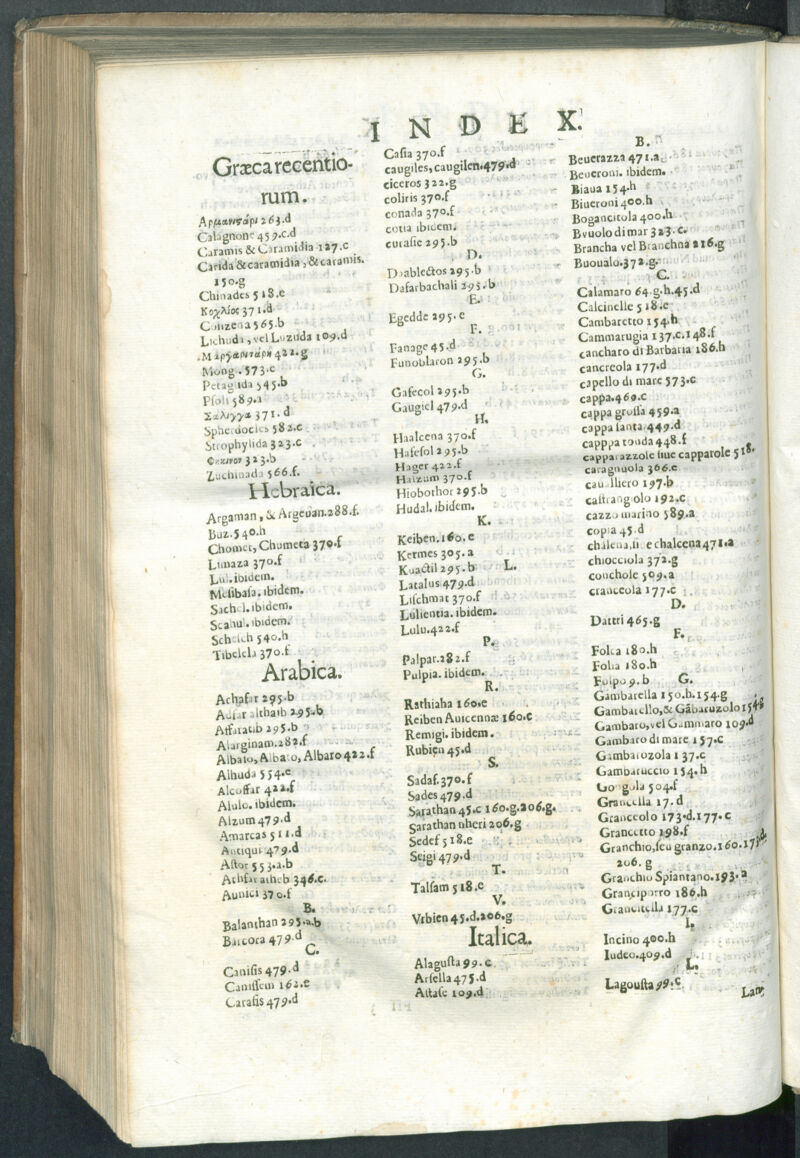 INDEX.
Græca recentio-
rum.
Αρμανιτάρι 263.d
Calagnone 459.c.d
Caramis & Caramidia 127.c
Carida & caramidia, & caramis.
150.g
Chinades 518.e
Κοχλίος 371.d
Conzena 565.b
Lichudi, vel Luzuda 109.d
Μαργαριτάρη 422.g
Mong. 573.c
Petagnida 545.b
Psoli 589.a
Σαλιγγα 371.d
Spherdocles 582.c
Strophylida 323.c
323.b
Zuchinada 566.f.
Hebraica.
Argaman, & Argeuan.288.f.
Buz.540.h
Chomet, Chumeta 370.f
Limaza 370.f
Lul.ibidem.
Mesibasa.ibidem.
Sachel.ibidem.
Seahul.ibidem.
Schelch 540.h
Tibelela 370.f
Arabica.
Achafar 295.b
althaib 295.b
Affaratib 295.b
Alarginam.282.f
Albato, Albaro, Albaro 422.f
Alhuda 554.e
Alcoffar 422.f
Alulo.ibidem.
Alzum 479.d
Amarcas 511.d
Antiqui 479.d
Astor 553.a.b
Athfar atheb 346.c.
Aunici 370.f
B.
Balanthan 295.a.b
Barcora 479.d
C.
Canisis 479.d
Canissem 162.e
Carasis 479.d
Casia 370.f
caugiles, caugilen.479.d
ciceros 322.g
coliris 370.f
conada 370.f
cotia ibidem.
curasic 295.b
D.
Diablectos 295.b
Dafarbachali 293.b
E.
Egedde 295.e
F.
Fanage 45.d
Funoblaron 295.b
G.
Gafecol 295.b
Gaugiel 479.d
H.
Haalcena 370.f
Hasesol 295.b
Hager 422.f
Halzum 370.f
Hioborhor 295.b
Hudal.ibidem.
K.
Keiben.160.e
Kermes 305.a
Kuactil 295.b
L.
Latalus 479.d
Lischmat 370.f
Lulientia.ibidem.
Lulu.422.f
P.
Palpar.282.f
Pulpia.ibidem.
R.
Rathiaha 160.e
Reiben Auicennæ 160.c
Remigi.ibidem.
Rubien 45.d
S.
Sadaf.370.f
Sades 479.d
Sarathan 45.c 160.g.206.g.
Sarathan nheri 206.g
Sedef 518.e
Seigi 479.d
T.
Talsam 518.e
V.
Vrbien 45.d.206.g
Italica.
Alagusta 99.c
Arselle 475.d
Astase 109.d
B.
Beuerazza 471.a
Beueroni.ibidem.
Biaua 154.h
Biueroni 400.h
Bogancitola 400.h
Bvuolo di mar 323.c.
Brancha vel Branchna 216.g
Buoualo.372.g.
C.
Calamaro 64.g.h.45.d
Calcinelle 518.e
Cambaretto 154.h
Cammarugia 137.c.148.f
cancharo di Barbaria 186.h
cancreola 177.d
capello di mare 573.c
cappa.469.c
cappa grossa 459.a
cappa santa 449.d
capppa tonda 448.f
capparazzole siue capparole 518.
caragnuola 366.e
caualliero 197.b
castrangolo 192.c
cazzo marino 589.a
copia 45.d
chalena, si e chalcena 471.a
chiocciola 372.g
conchole 509.a
cranceola 177.c
D.
Dattri 465.g
F.
Folca 180.h
Folia 180.h
Folpo 9.b
G.
Gambarella 150.h.154.g
Gambarello, & Gãbaruzolo 154.g
Gambaro, vel Gammaro 109.d
Gambaro di mare 157.c
Gambarozola 137.c
Gambaruccio 154.h
Gongola 504.f
Grancella 17.d
Granceolo 173.d.177.c
Grancetto 198.f
Granchio, seu granzo.160.173.d.
206.g
Granchio Spiantano.193.a
Granciporro 186.h
Grancitella 177.c
I.
Incino 400.h
Iudeo.409.d
L.
Lagousta 99.c